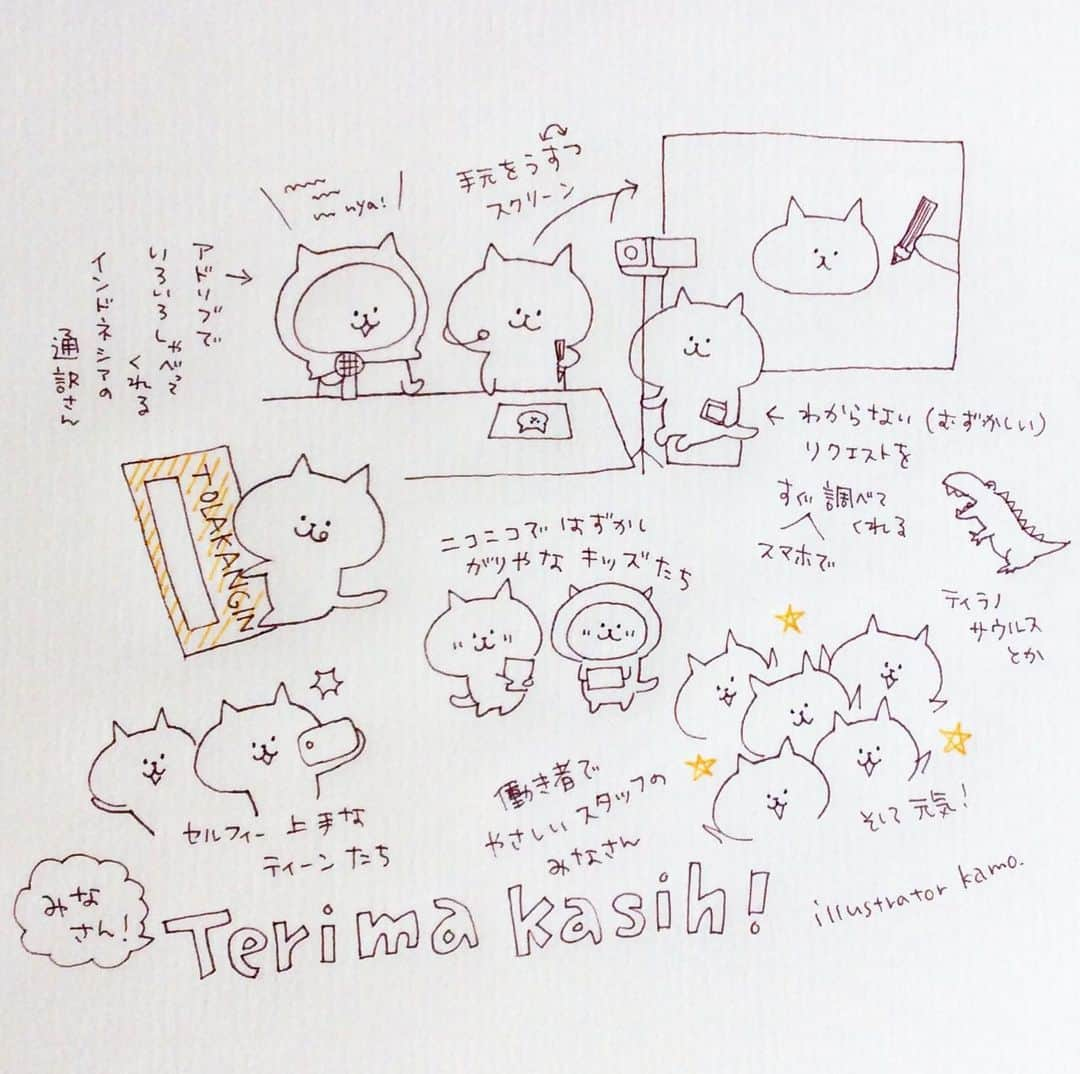 nya!
アドリブで
いろいろしゃべって
くれる
インドネシアの
通訳さん
手元をうすつ
スクリーン
← わからない(むずかしい)
リクエストを
すぐ調べて
くれる
スマホで
ティラノ
サウルス
とか
TOLAKANGIN
ニコニコで はずかし
がりやな キッズたち
セルフィー 上手な
ティーンたち
働き者で
やさしいスタッフの
みなさん
そして元気!
みな
さん!
Terima kasih!
illustrator kamo.